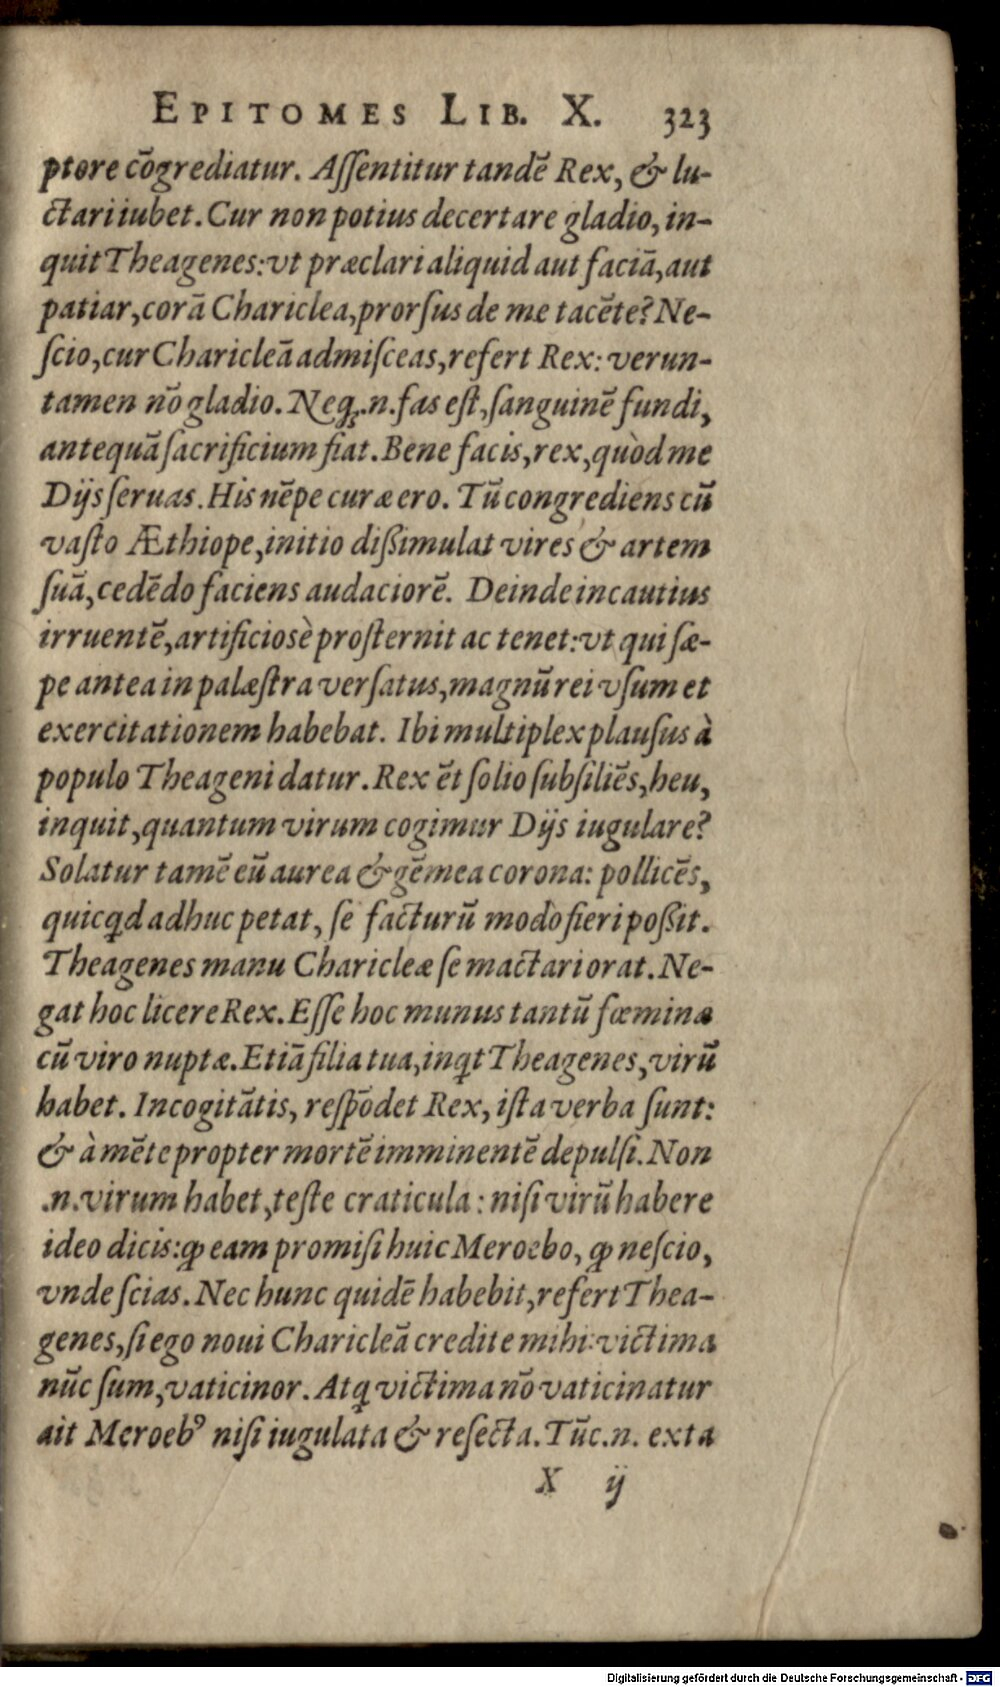 EPITOMES LIB. X. 323
ptore cōgrediatur. Aſſentitur tandē Rex, & lu-
ctari iubet. Cur non potius decertare gladio, in-
quit Theagenes: vt præclari aliquid aut faciā, aut
patiar, corā Chariclea, prorſus de me tacēte? Ne-
ſcio, cur Charicleā admiſceas, refert Rex: verun-
tamen nō gladio. Neq;.n. fas eſt, ſanguinē fundi,
antequā ſacrificium fiat. Bene facis, rex, quòd me
Dijs ſeruas. His nēpe curæ ero. Tū congrediens cū
vaſto Æthiope, initio dißimulat vires & artem
ſuā, cedēdo faciens audaciorē. Deinde incautius
irruentē, artificiosè proſternit ac tenet: vt qui ſæ-
pe antea in palæſtra verſatus, magnū rei vſum et
exercitationem habebat. Ibi multiplex plauſus à
populo Theageni datur. Rex ēt ſolio ſubſiliēs, heu,
inquit, quantum virum cogimur Dijs iugulare?
Solatur tamē eū aurea & gēmea corona: pollicēs,
quicꝗd adhuc petat, ſe facturū modò fieri poßit.
Theagenes manu Charicleæ ſe mactari orat. Ne-
gat hoc licere Rex. Eſſe hoc munus tantū fœminæ
cū viro nuptæ. Etiā filia tua, inꝗt Theagenes, virū
habet. Incogitātis, reſpōdet Rex, iſta verba ſunt:
& à mēte propter mortē imminentē depulſi. Non
.n. virum habet, teſte craticula: niſi virū habere
ideo dicis: ꝙ eam promiſi huic Meroebo, ꝙ neſcio,
vnde ſcias. Nec hunc quidē habebit, refert Thea-
genes, ſi ego noui Charicleā credite mihi: victima
nūc ſum, vaticinor. Atꝗ victima nō vaticinatur
ait Meroebꝰ niſi iugulata & reſecta. Tūc.n. exta
X ij
Digitalisierung gefördert durch die Deutsche Forschungsgemeinschaft - DFG